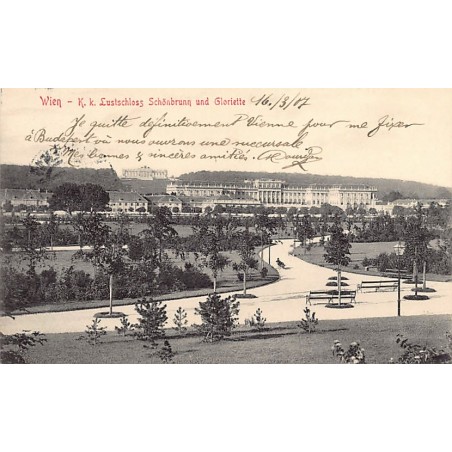 Wien - K. k. Lustschloss Schönbrunn und Gloriette 16/3/07
Je quitte definitivement Vienne pour me fixer
à Budapest où nous ouvrons une succursale
Mes bonnes & sincères amitiés.